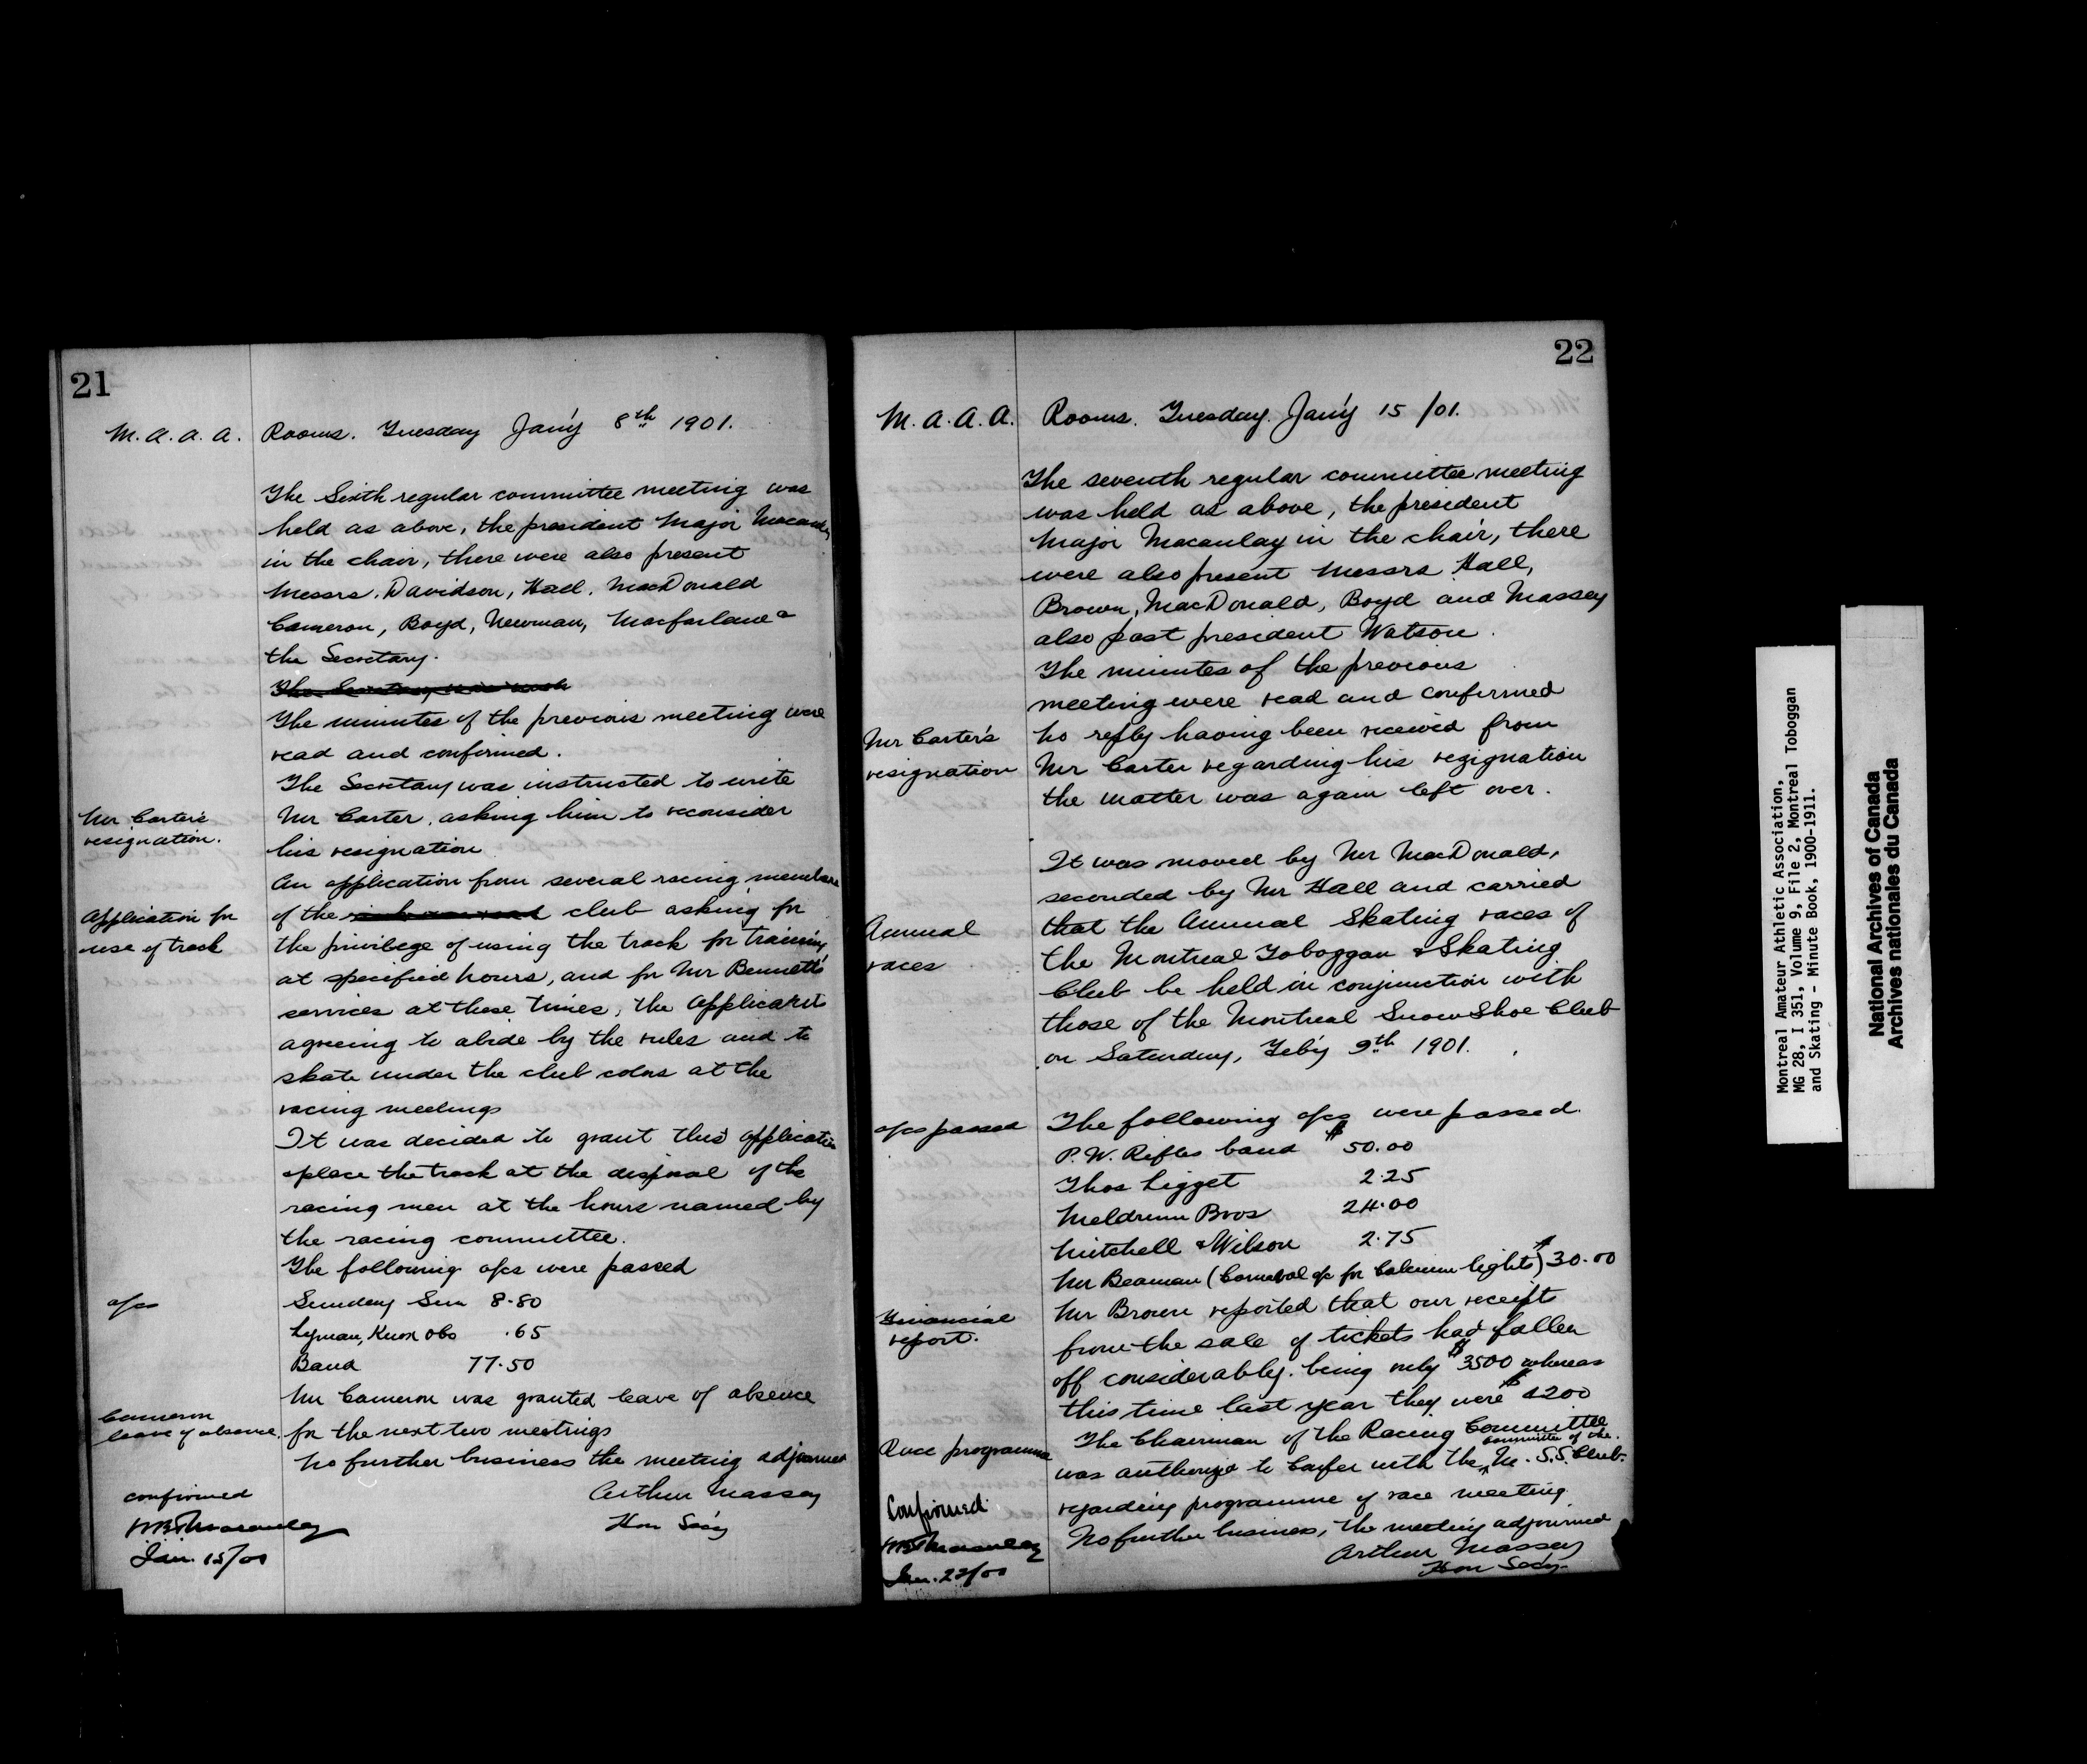 21
M.A.A.A. Rooms. Tuesday Jan'y 8th 1901.
The Sixth regular committee meeting was
held as above, the president Major Macaulay
in the chair, there were also present
Messrs. Davidson, Hall, MacDonald
Cameron, Boyd, Newman, Macfarlane &
the Secretary.
The Secretary was
The minutes of the previous meeting were
read and confirmed.
The Secretary was instructed to write
Mr Carter's Mr Carter, asking him to reconsider
resignation. his resignation
An application from several racing members
Application for of the club asking for
use of track the privilege of using the track for training
at specified hours, and for Mr Bennett's
services at these times, the applicants
agreeing to abide by the rules and to
skate under the club colors at the
racing meetings
It was decided to grant this application
& place the track at the disposal of the
racing men at the hours named by
the racing committee.
The following a/cs were passed
a/cs Sunday Sun 8.80
Lyman, Knox &Co .65
Band 77.50
Mr Cameron was granted leave of absence
Cameron
leave of absence. for the next two meetings
No further business the meeting adjourned
confirmed Arthur Massey
Hon Sec'y
Jan. 15/01
22
M.A.A.A. Rooms. Tuesday. Jan'y 15 /01.
The seventh regular committee meeting
was held as above, the president
Major Macaulay in the chair, there
were also present Messrs Hall,
Brown, MacDonald, Boyd and Massey
also past president Watson.
The minutes of the previous
meeting were read and confirmed
Mr Carter's No reply having been received from
resignation Mr Carter regarding his resignation
the matter was again left over.
It was moved by Mr MacDonald,
seconded by Mr Hall and carried
Annual that the Annual Skating races of
races the Montreal Toboggan & Skating
Club be held in conjunction with
those of the Montreal Snow Shoe Club
on Saturday, Feb'y 9th 1901.
a/cs passed The following a/cs were passed.
P.W. Rifles band $50.00
Thos Ligget 2.25
Meldrum Bros 24.00
Mitchell & Wilson 2.75
Mr Beaman (Carnival a/c for Calcium lights) $30.00
Financial Mr Brown reported that our receipts
report. from the sale of tickets had fallen
off considerably. being only $3500 whereas
this time last year they were $4200
The Chairman of the Racing Committee
Race programme was authorized to confer with the committee of the M. S.S. Club.
regarding programme of race meeting
Confirmed No further business, the meeting adjourned
Arthur Massey
Hon Sec'y.
Jan. 22/01
Montreal Amateur Athletic Association,
MG 28, I 351, Volume 9, File 2, Montreal Toboggan
and Skating - Minute Book, 1900-1911.
National Archives of Canada
Archives nationales du Canada